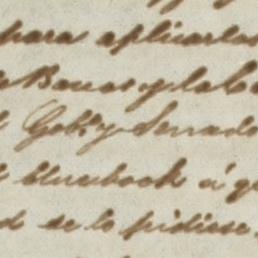 para aplicarlos
Bonos y la
Gob.º y Senado
bluebook á
se lo pidiese